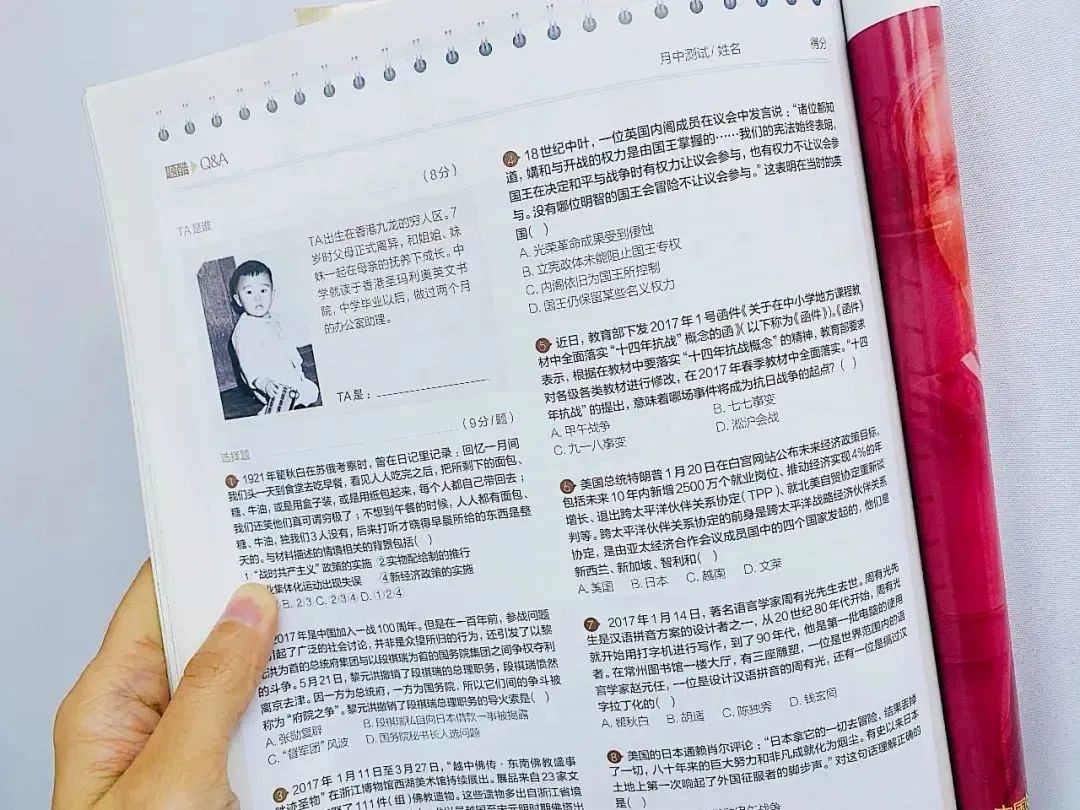 月中测试/姓名
得分
题酷 Q&A
(8分)
TA是谁
TA出生在香港九龙的穷人区。7
岁时父母正式离异,和姐姐、妹
妹一起在母亲的抚养下成长。中
学就读于香港圣玛利奥英文书
院,中学毕业以后,做过两个月
的办公室助理。
TA是:
(9分/题)
选择题
1 1921年瞿秋白在苏俄考察时,曾在日记里记录:回忆一月间
我们头一天到食堂去吃早餐,看见人人吃完之后,把所剩下的面包、
糖、牛油,或是用盒子装,或是用纸包起来,每个人都自己带回去;
我们还笑他们真可谓穷极了;不想到午餐的时候,人人都有面包、
糖、牛油,独我们3人没有,后来打听才晓得早晨所给的东西是整
天的。与材料描述的情境相关的背景包括( )
①“战时共产主义”政策的实施 ②实物配给制的推行
集体化运动出现失误 ④新经济政策的实施
B. ②③ C. ②③④ D. ①②④
2017年是中国加入一战100周年。但是在一百年前,参战问题
引起了广泛的社会讨论,并非是众望所归的行为,还引发了以黎
元洪为首的总统府集团与以段祺瑞为首的国务院集团之间争权夺利
的斗争。5月21日,黎元洪撤销了段祺瑞的总理职务,段祺瑞愤然
离京去津。因一方为总统府,一方为国务院,所以它们间的争斗被
称为“府院之争”。黎元洪撤销了段祺瑞总理职务的导火索是( )
A. 张勋复辟 B. 段祺瑞私自向日本借款一事被揭露
C. “督军团”风波 D. 国务院秘书长人选问题
3 2017年1月11日至3月27日,“越中佛传·东南佛教盛事
胜迹圣物”在浙江博物馆西湖美术馆持续展出。展品来自23家文
了111件(组)佛教遗物。这些遗物多出自浙江省境
4 18世纪中叶,一位英国内阁成员在议会中发言说:“诸位都知
道,媾和与开战的权力是由国王掌握的……我们的宪法始终表明,
国王在决定和平与战争时有权力让议会参与,也有权力不让议会参
与。没有哪位明智的国王会冒险不让议会参与。”这表明在当时的英
国( )
A. 光荣革命成果受到侵蚀
B. 立宪政体未能阻止国王专权
C. 内阁依旧为国王所控制
D. 国王仍保留某些名义权力
5 近日,教育部下发2017年1号函件《关于在中小学地方课程教
材中全面落实“十四年抗战”概念的函》(以下称为《函件》)。《函件》
表示,根据在教材中要落实“十四年抗战概念”的精神,教育部要求
对各级各类教材进行修改,在2017年春季教材中全面落实。“十四
年抗战”的提出,意味着哪场事件将成为抗日战争的起点?( )
A. 甲午战争 B. 七七事变
C. 九一八事变 D. 淞沪会战
6 美国总统特朗普1月20日在白宫网站公布未来经济政策目标,
包括未来10年内新增2500万个就业岗位、推动经济实现4%的年
增长、退出跨太平洋伙伴关系协定(TPP)、就北美自贸协定重新谈
判等。跨太平洋伙伴关系协定的前身是跨太平洋战略经济伙伴关系
协定,是由亚太经济合作会议成员国中的四个国家发起的,他们是
新西兰、新加坡、智利和( )
A. 美国 B. 日本 C. 越南 D. 文莱
7 2017年1月14日,著名语言学家周有光先生去世。周有光先
生是汉语拼音方案的设计者之一,从20世纪80年代开始,周有光
就开始用打字机进行写作,到了90年代,他是第一批电脑的使用
者。在常州图书馆一楼大厅,有三座雕塑,一位是世界范围内的语
言学家赵元任,一位是设计汉语拼音的周有光,还有一位是搞过汉
字拉丁化的( )
A. 瞿秋白 B. 胡适 C. 陈独秀 D. 钱玄同
8 美国的日本通赖肖尔评论:“日本拿它的一切去冒险,结果丢掉
了一切,八十年来的巨大努力和非凡成就化为烟尘。有史以来日本
土地上第一次响起了外国征服者的脚步声。”对这句话理解正确的
是( )